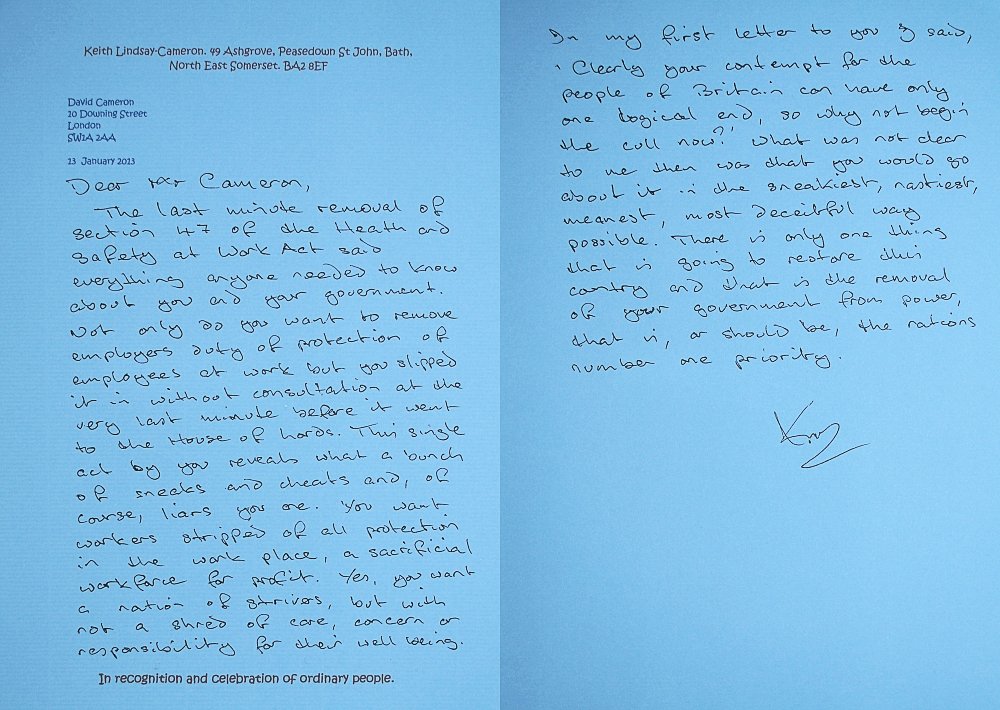 Keith Lindsay-Cameron. 49 Ashgrove, Peasedown St John, Bath,
North East Somerset. BA2 8EF
David Cameron
10 Downing Street
London
SW1A 2AA
13 January 2013
Dear Mr Cameron,
The last minute removal of
section 47 of the Heath and
Safety at Work Act said
everything anyone needed to know
about you and your government.
Not only do you want to remove
employers duty of protection of
employees at work but you slipped
it in without consultation at the
very last minute before it went
to the House of Lords. This single
act by you reveals what a bunch
of sneaks and cheats and, of
course, liars you are. You want
workers stripped of all protection
in the work place, a sacrificial
workforce for profit. Yes, you want
a nation of strivers, but with
not a shred of care, concern or
responsibility for their well being.
In recognition and celebration of ordinary people.
In my first letter to you I said,
'Clearly your contempt for the
people of Britain can have only
one logical end, so why not begin
the cull now?' What was not clear
to me then was that you would go
about it in the sneakiest, nastiest,
meanest, most deceitful way
possible. There is only one thing
that is going to restore this
contry and that is the removal
of your government from power,
that is, or should be, the nations
number one priority.